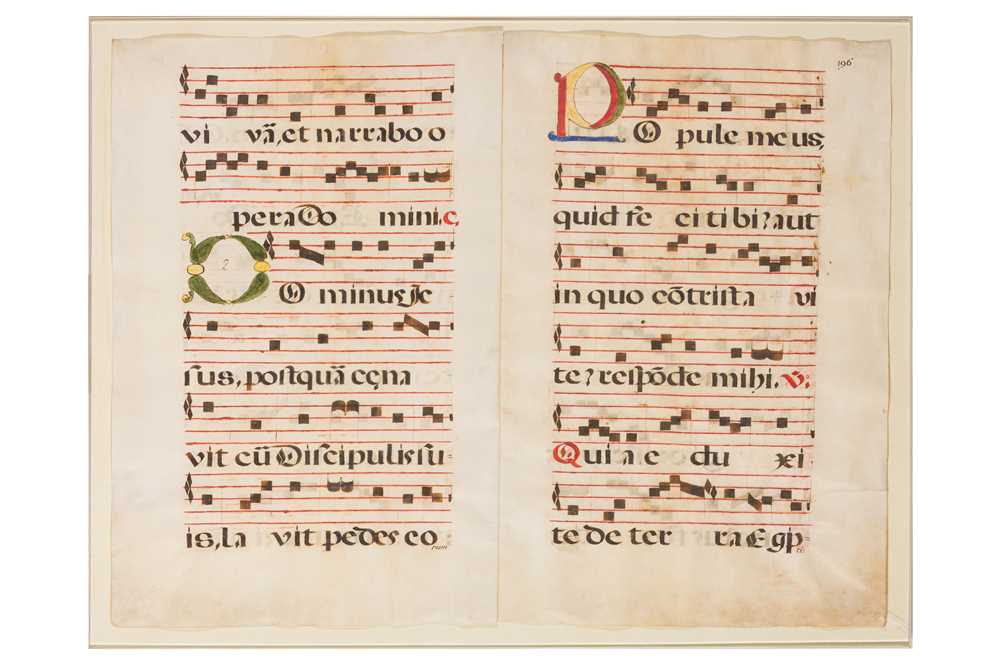 vi vã, et narrabo o
pera Do mini. c,
2
DO minus Je
sus, postquã cęna
vit cũ Discipulis su-
is, la vit pedes eo
rum
196
PO pule meus,
quid fe ci ti bi? aut
in quo cõtrista vi
te? respõde mihi. V:
Quia e du xi
te de ter ra Egip
ti